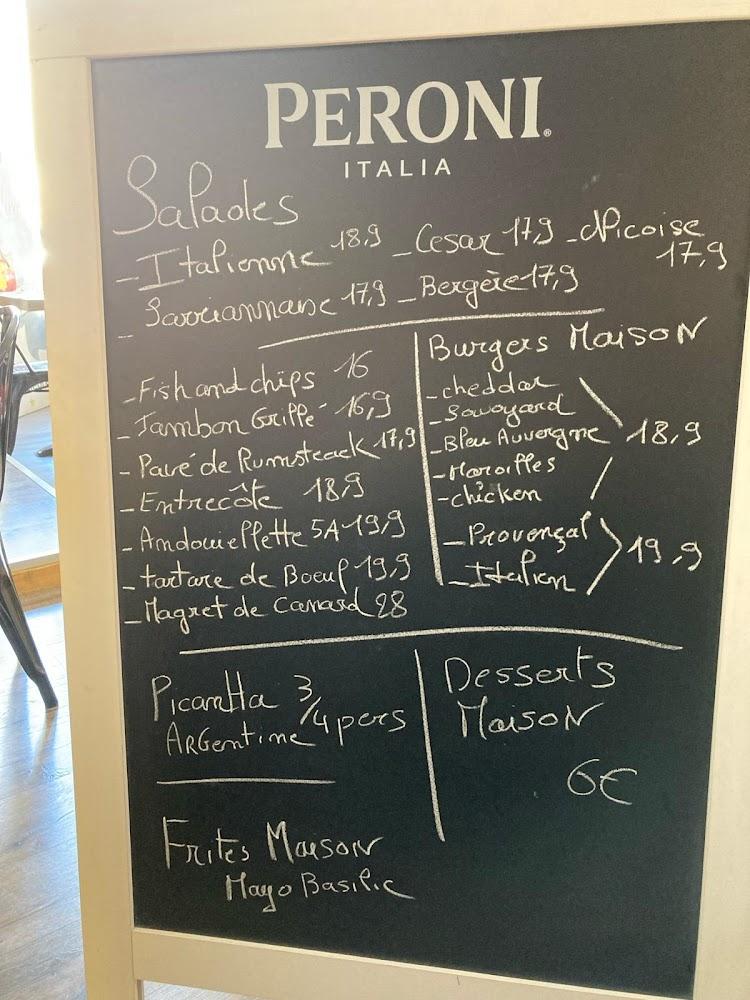 PERONI
ITALIA
Salades
- Italienne 18,9 - Cesar 17,9 - Nicoise 17,9
- 17,9 - Bergère 17,9
- Fish and chips 16
- Jambon Grillé 16,9
- Pavé de Rumsteack 17,9
- Entrecôte 18,9
- Andouillette 5A 19,9
- tartare de Boeuf 19,9
- Magret de Canard 28
Burgers Maison
- cheddar
- Savoyard
- Bleu Auvergne 18,9
- Maroilles
- chicken
- Provençal
- Italien 19,9
Picanha 3/4 pers
Argentine
Desserts
Maison
6€
Frites Maison
Mayo Basilic